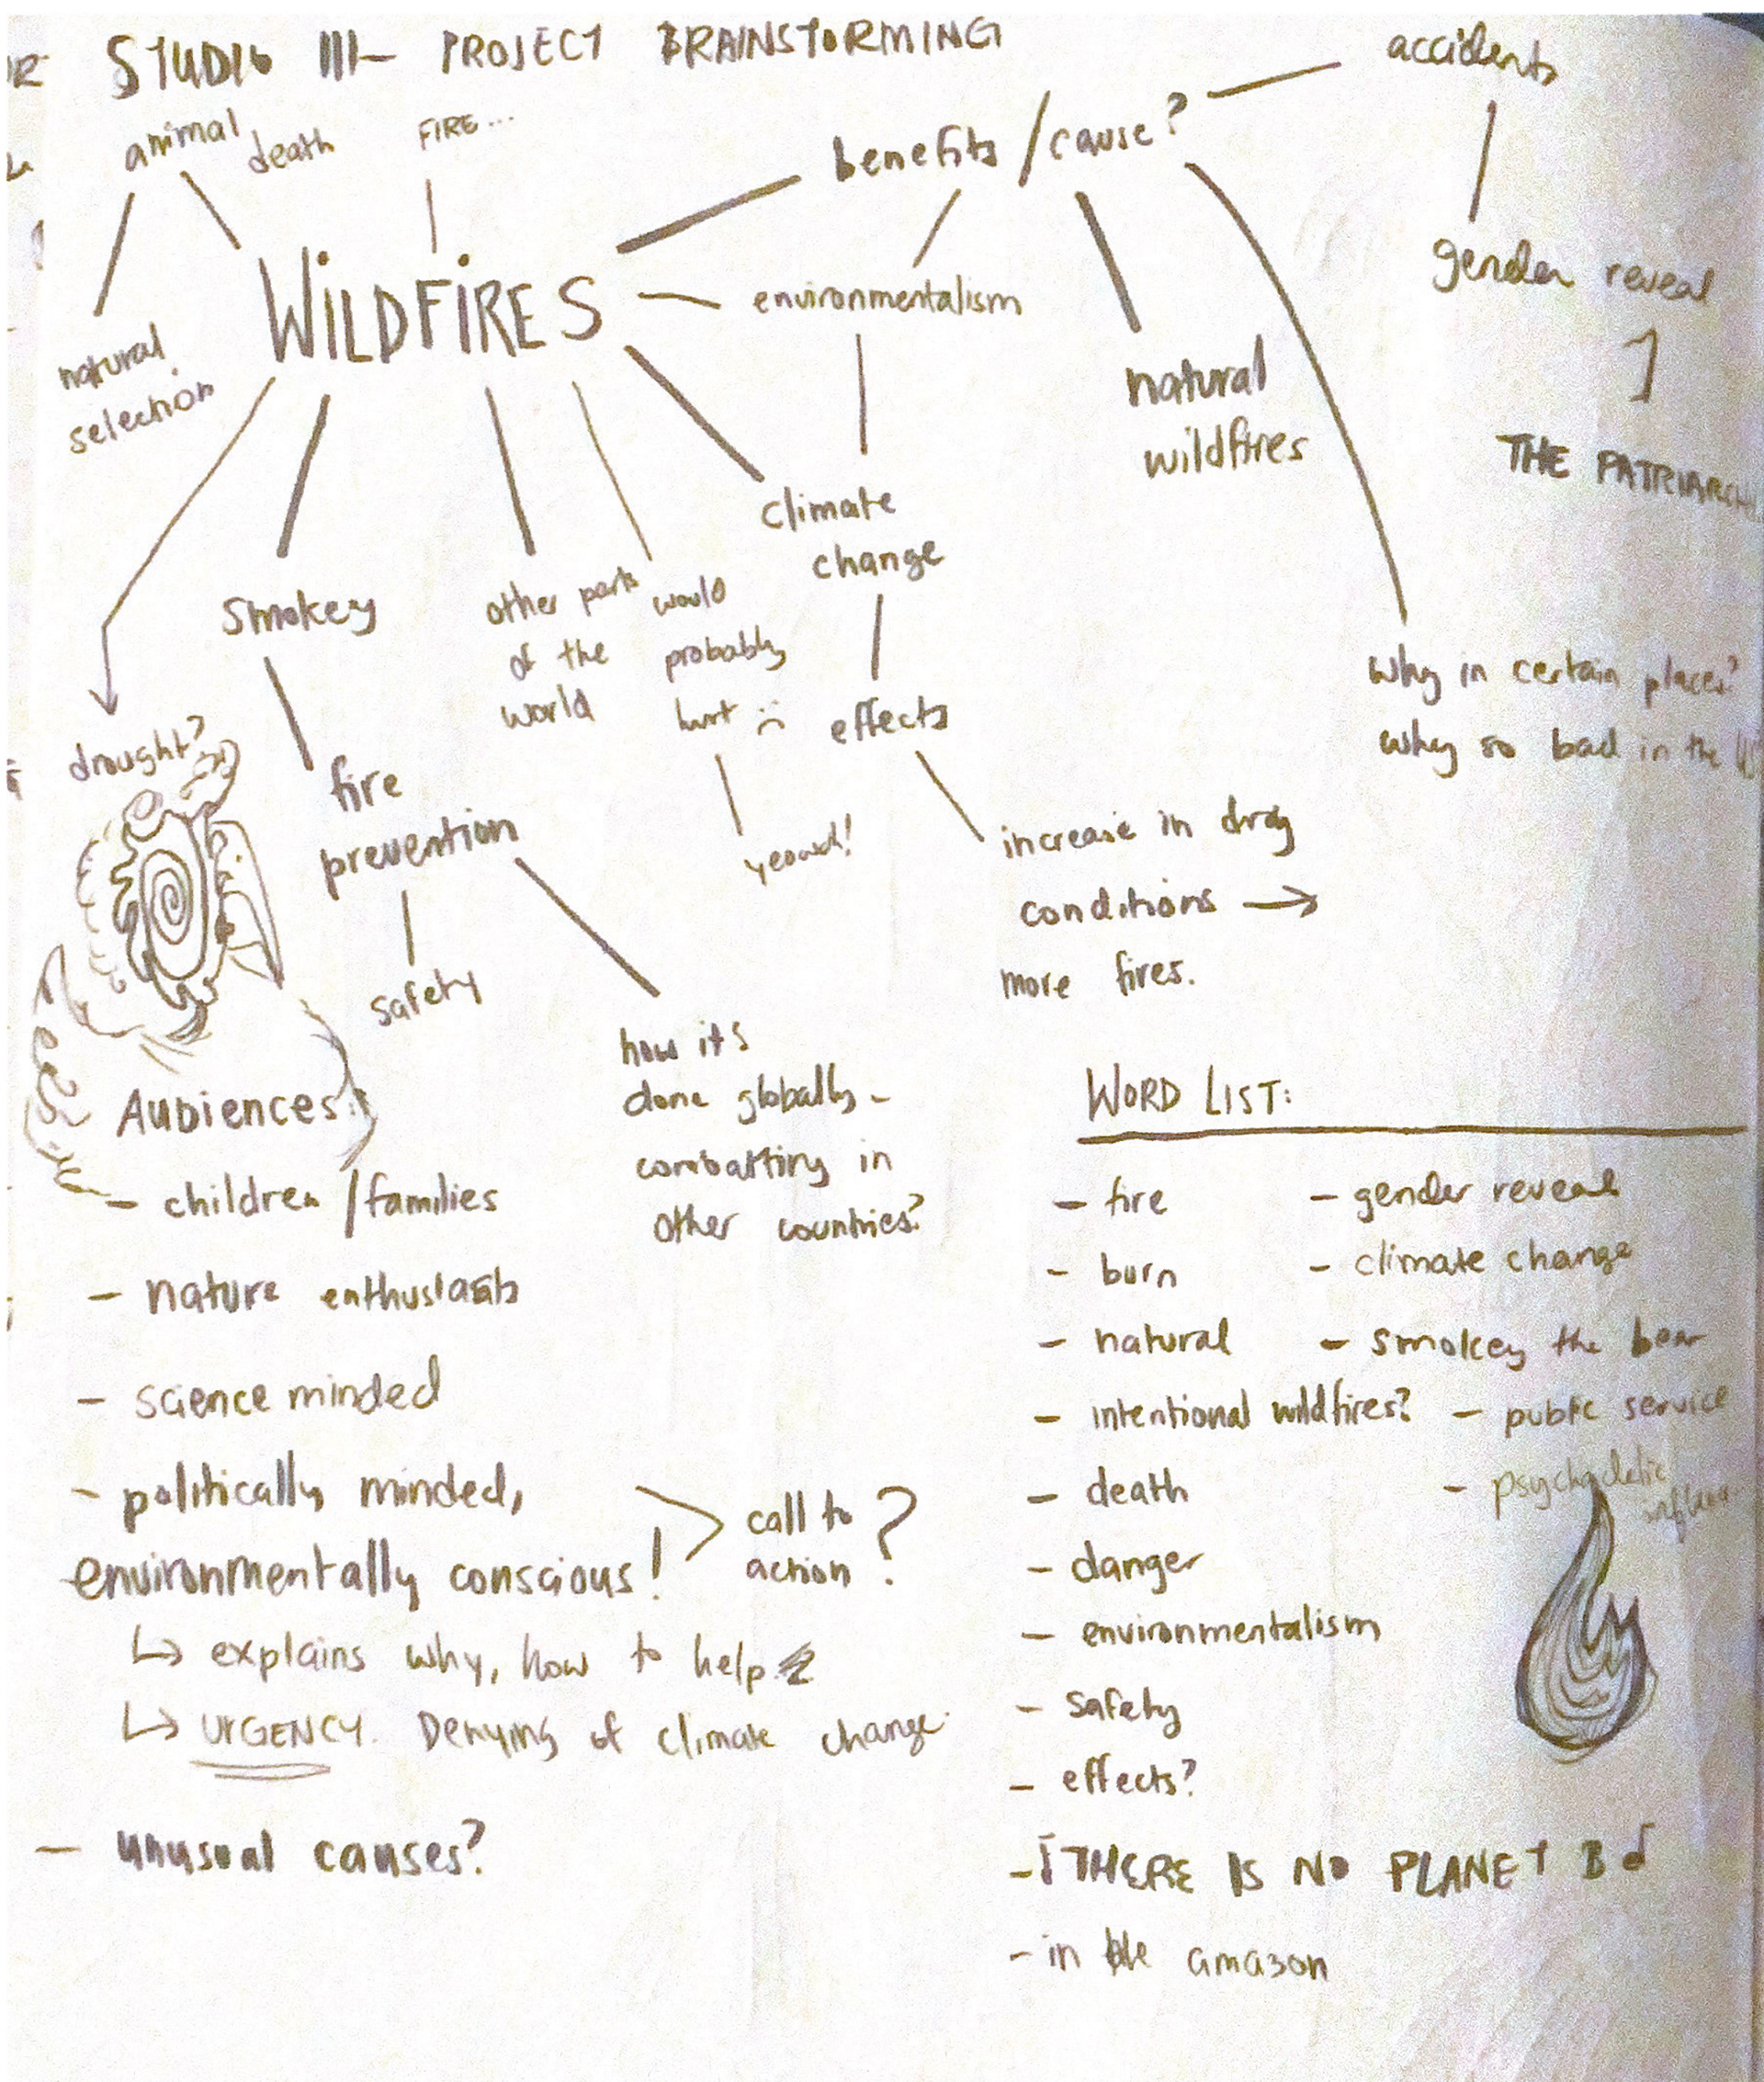 STUDIO III - PROJECT BRAINSTORMING
animal death
FIRE...
benefits / cause?
accidents
gender reveal
THE PATRIARCH
WILDFIRES
environmentalism
natural
selection
natural
wildfires
climate
change
Smokey
other parts
of the
world
would
probably
hurt :(
effects
why in certain places?
why so bad in the
drought?
fire
prevention
yeowch!
increase in dry
conditions →
more fires.
safety
how it's
done globally -
combatting in
other countries?
AUDIENCES:
- children / families
- nature enthusiasts
- science minded
- politically minded,
environmentally conscious!
call to
action?
↳ explains why, how to help
↳ URGENCY. Denying of climate change.
- unusual causes?
WORD LIST:
- fire
- burn
- natural
- intentional wildfires?
- death
- danger
- environmentalism
- safety
- effects?
- THERE IS NO PLANET B
- in the amazon
- gender reveal
- climate change
- smokey the bear
- public service
- psychadelic